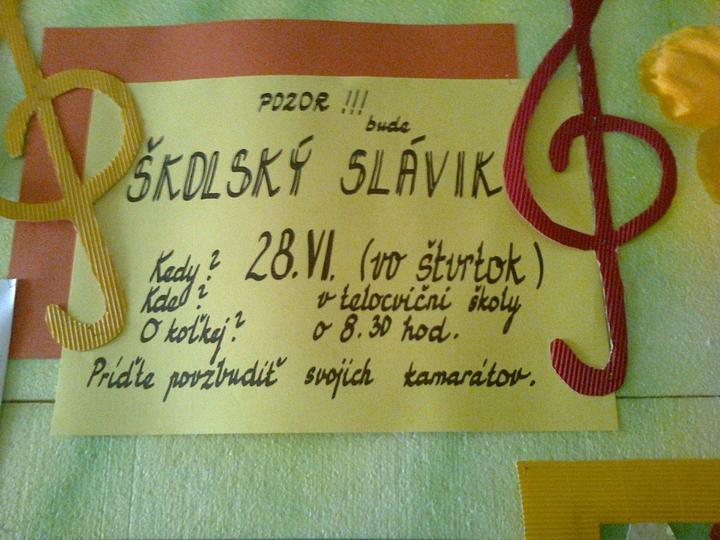 POZOR !!!
bude
ŠKOLSKÝ SLÁVIK
Kedy? 28.VI. (vo štvrtok)
Kde? v telocvični školy
O koľkej? o 8.30 hod.
Príďte povzbudiť svojich kamarátov.